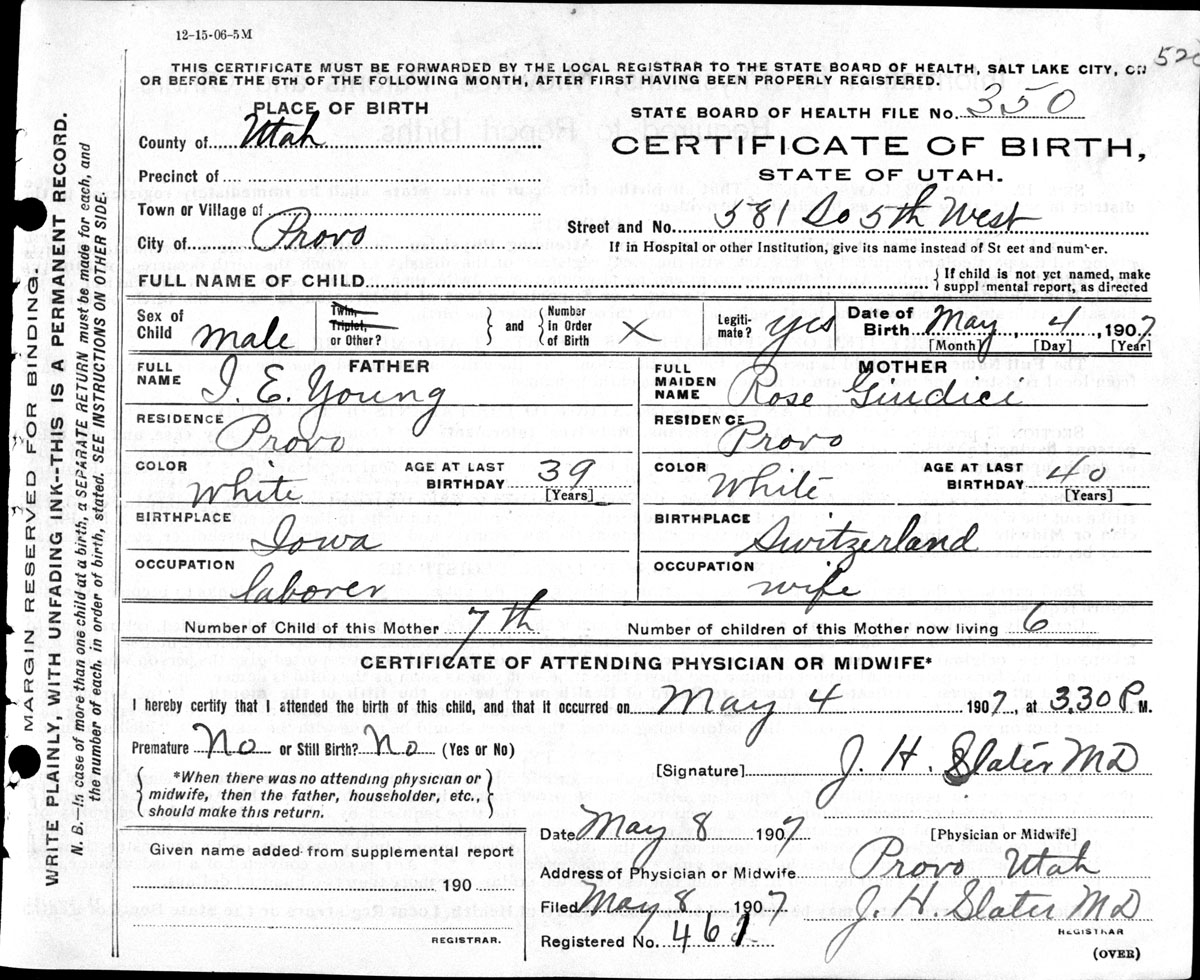 12-15-06-5M
520
THIS CERTIFICATE MUST BE FORWARDED BY THE LOCAL REGISTRAR TO THE STATE BOARD OF HEALTH, SALT LAKE CITY, ON
OR BEFORE THE 5TH OF THE FOLLOWING MONTH, AFTER FIRST HAVING BEEN PROPERLY REGISTERED.
PLACE OF BIRTH
County of Utah
Precinct of
Town or Village of
City of Provo
STATE BOARD OF HEALTH FILE No. 350
CERTIFICATE OF BIRTH,
STATE OF UTAH.
Street and No. 581 So 5th West
If in Hospital or other Institution, give its name instead of St eet and num'er.
FULL NAME OF CHILD
} If child is not yet named, make
suppl mental report, as directed
Sex of Child male
Twin, Triplet, or Other? } and { Number in Order of Birth X
Legiti-mate? yes
Date of Birth May 4, 1907
[Month] [Day] [Year]
FATHER
FULL NAME I. E. Young
RESIDENCE Provo
COLOR White AGE AT LAST BIRTHDAY 39
[Years]
BIRTHPLACE Iowa
OCCUPATION laborer
MOTHER
FULL MAIDEN NAME Rose Giudici
RESIDENCE Provo
COLOR White AGE AT LAST BIRTHDAY 40
[Years]
BIRTHPLACE Switzerland
OCCUPATION wife
Number of Child of this Mother 7th Number of children of this Mother now living 6
CERTIFICATE OF ATTENDING PHYSICIAN OR MIDWIFE*
I hereby certify that I attended the birth of this child, and that it occurred on May 4 1907, at 3.30 P M.
Premature No or Still Birth? No (Yes or No)
*When there was no attending physician or
midwife, then the father, householder, etc.,
should make this return.
[Signature] J. H. Slater MD
Given name added from supplemental report
190
REGISTRAR.
Date May 8 1907 [Physician or Midwife]
Address of Physician or Midwife Provo Utah
Filed May 8 1907 J. H. Slater MD
REGISTRAR
Registered No. 461
(OVER)
MARGIN RESERVED FOR BINDING.
WRITE PLAINLY, WITH UNFADING INK--THIS IS A PERMANENT RECORD.
N. B.—In case of more than one child at a birth, a SEPARATE RETURN must be made for each, and
the number of each, in order of birth, stated. SEE INSTRUCTIONS ON OTHER SIDE.